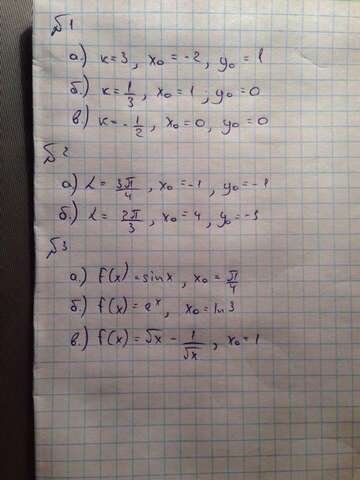 №1
а.) k=3, x₀=-2, y₀=1
б.) k=1/3, x₀=1; y₀=0
в.) k=-1/2, x₀=0, y₀=0
№2
а) α=3π/4, x₀=-1, y₀=-1
б.) α=2π/3, x₀=4, y₀=-3
№3
а.) f(x)=sinx, x₀=π/4
б.) f(x)=eˣ, x₀=ln3
в.) f(x)=√x - 1/√x, x₀=1